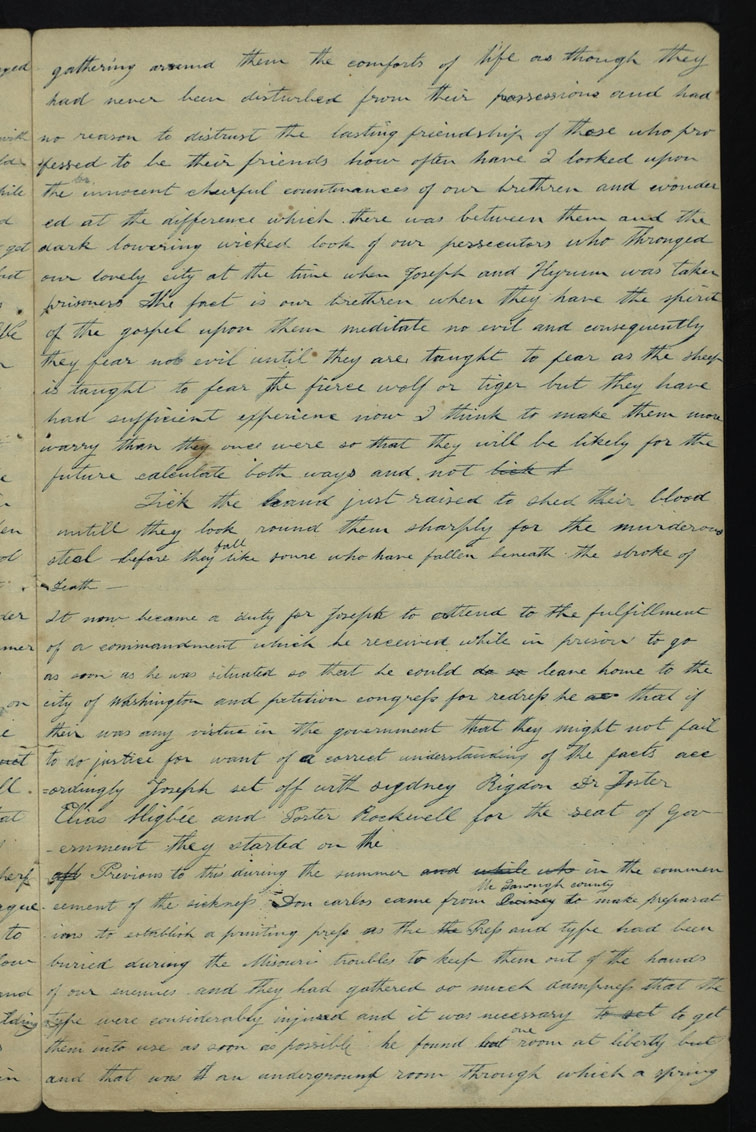 gathering around them the comforts of life as though they
had never been disturbed from their possessions and had
no reason to distrust the lasting friendship of those who pro
fessed to be their friends how often have I looked upon
the innocent cheerful countinances of our brethren and wonder
ed at the difference which there was between them and the
dark lowering wicked look of our persecutors who thronged
our lovely city at the time when Joseph and Hyrum was taken
prisoners The fact is our brethren when they have the spirit
of the gospel upon them meditate no evil and consequently
they fear no evil until they are taught to fear as the sheep
is taught to fear the fierce wolf or tiger but they have
had sufficient experienc now I think to make them more
warry than they once were so that they will be likely for the
future calculate both ways and not lick t
Lick the hand just raised to shed their blood
untill they look round them sharply for the murderous
steel before they fall like some who have fallen beneath the stroke of
Death —
It now became a duty for Joseph to attend to the fulfillment
of a commandment which he received while in prison to go
as soon as he was situated so that he could do so leave home to the
city of Washington and petition congress for redress he that if
their was any virtue in the government that they might not fail
to do justice for want of a correct understanding of the facts acc
=ordingly Joseph set off with sigdney Rigdon Dr Foster
Elias Higbee and Porter Rockwell for the seat of Gov-
-ernment they started on the
Previous to this during the summer and while in the commen
-cement of the sickness Don carlos came from Mc Donough county to make preparat
ions to establish a printing press as the the Press and type had been
buried during the Misouri troubles to keep them out of the hands
of our enemies and they had gathered so much dampness that the
type were considerably injured and it was necessary to get to get
them into use as soon as possible he found but one room at liberty but
and that was an underground room through which a spring